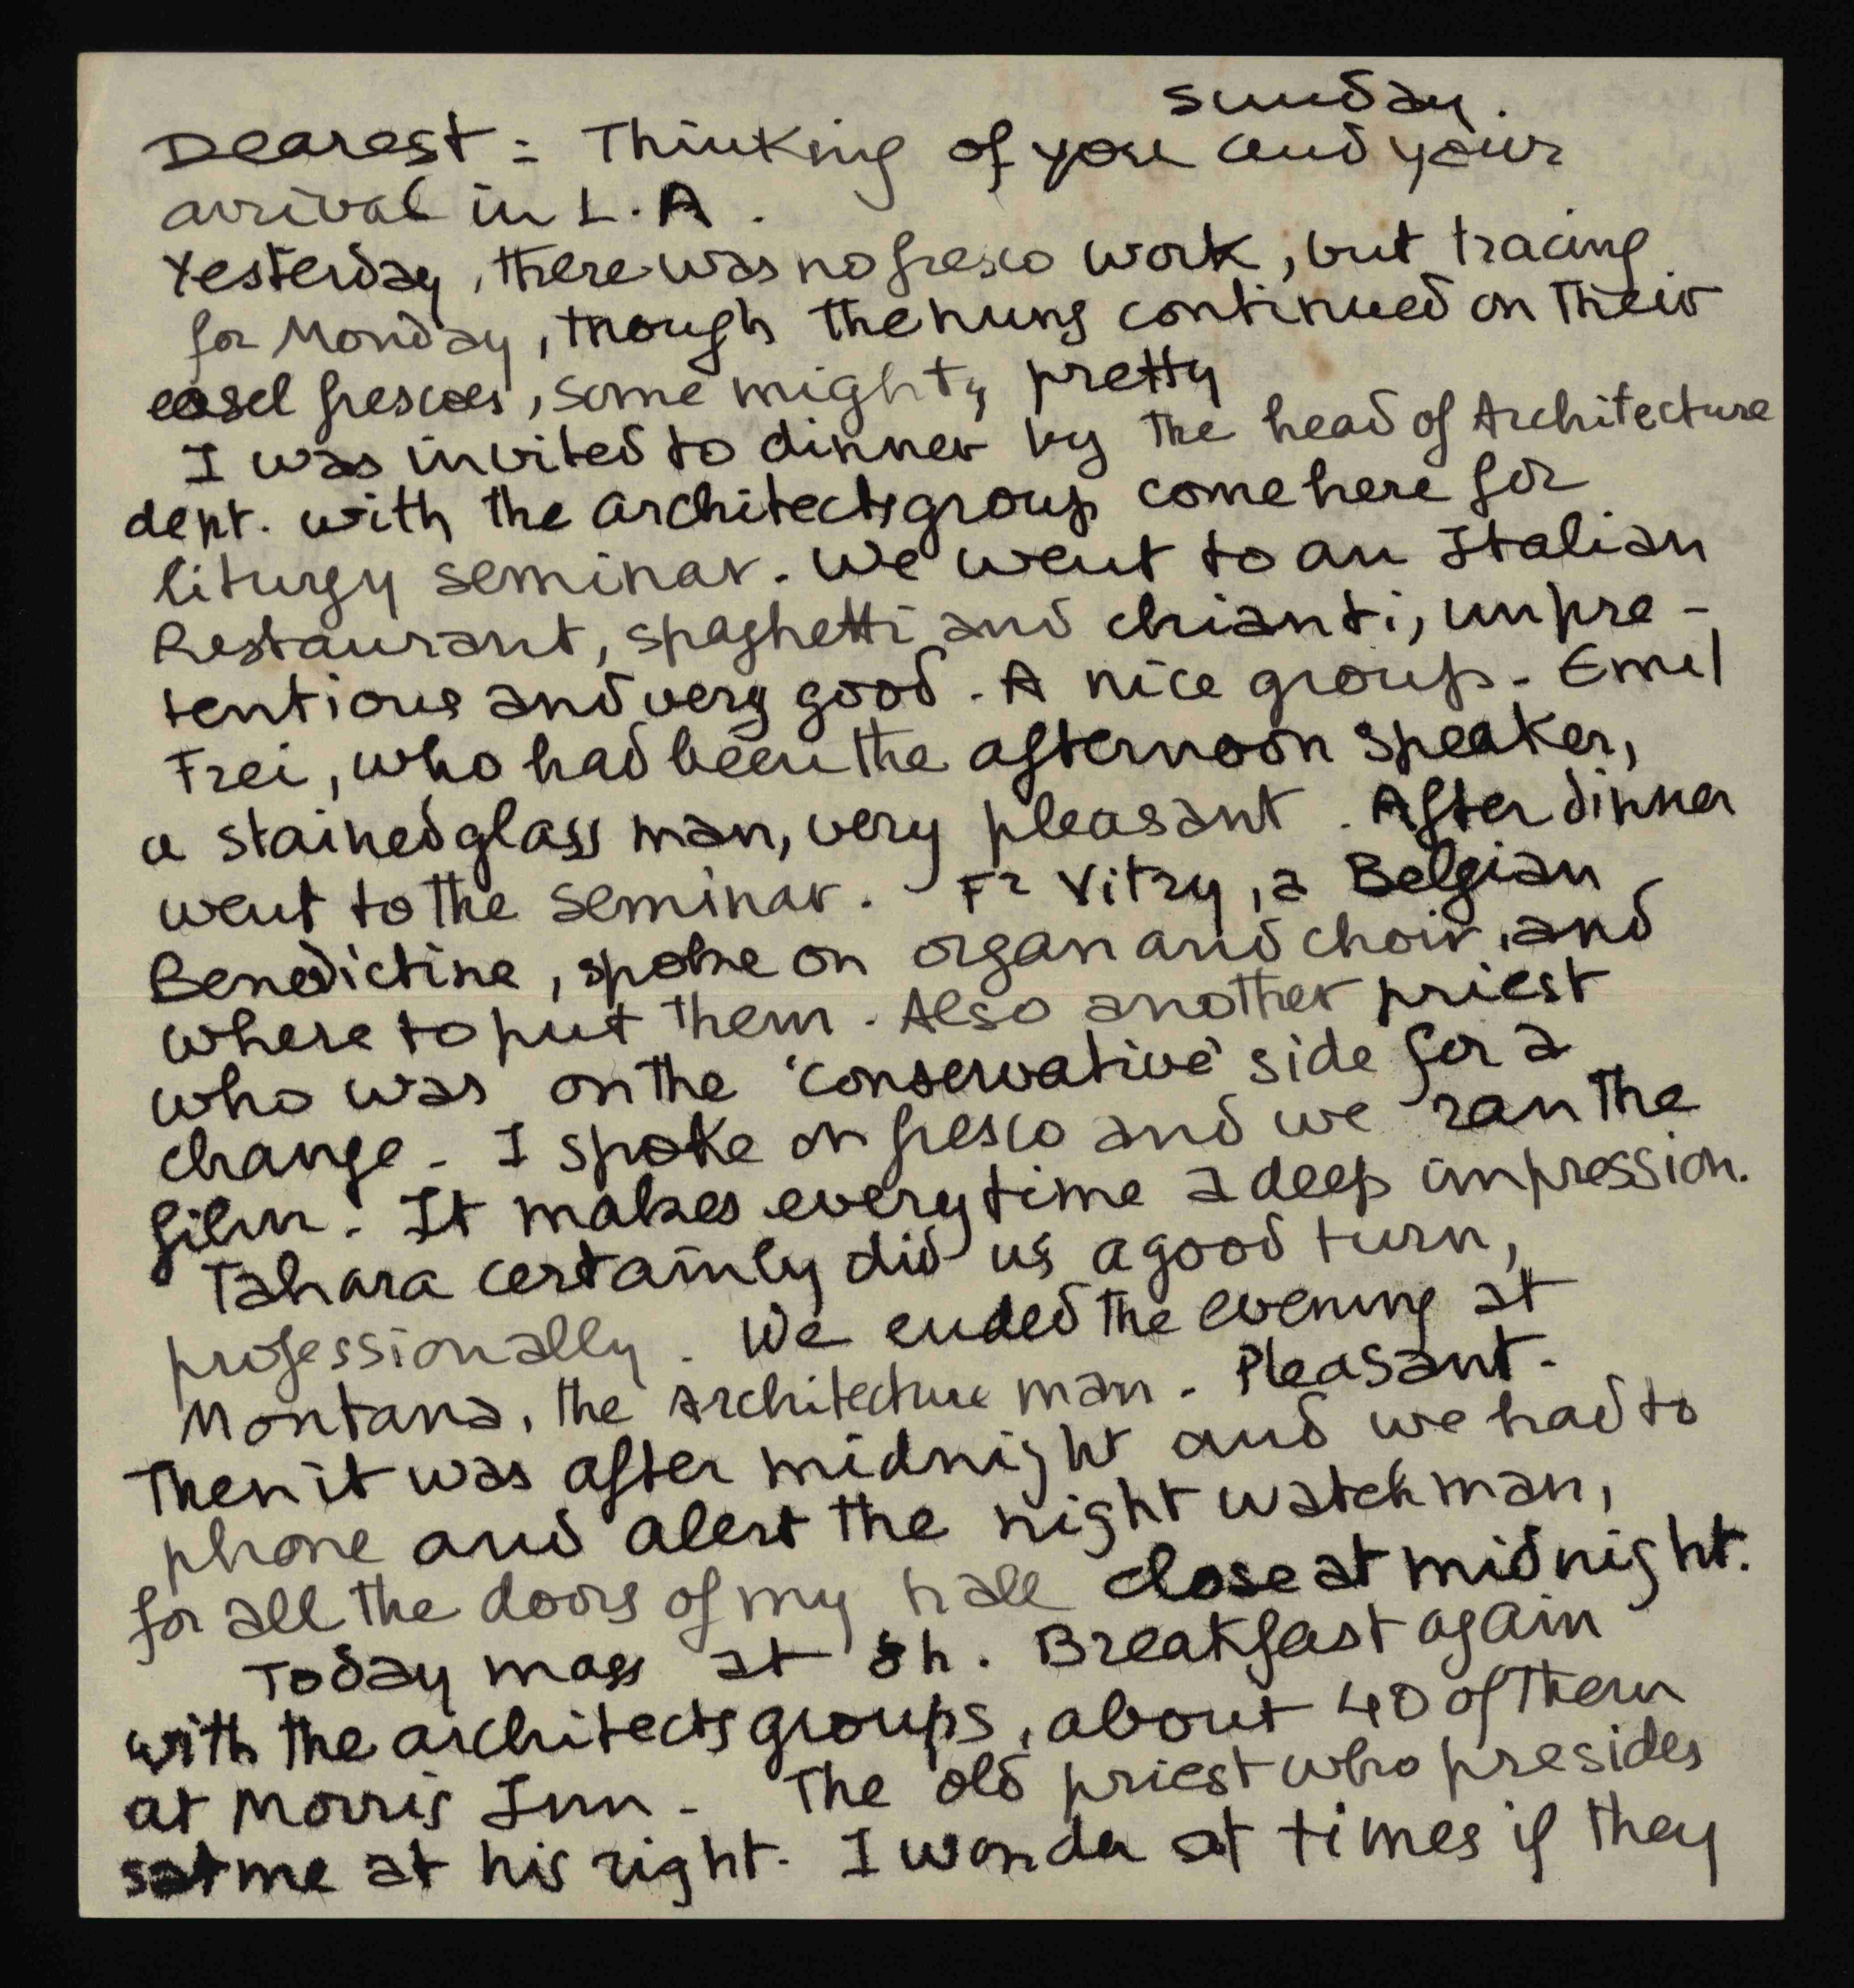 Sunday.
Dearest = Thinking of you and your
arrival in L.A.
Yesterday, there was no fresco work, but tracing
for Monday, though the nuns continued on their
easel frescoes, some mighty pretty
I was invited to dinner by the head of Architecture
dept. with the architects group come here for
liturgy seminar. We went to an Italian
Restaurant, spaghetti and chianti, unpre-
tentious and very good. A nice group. Emil
Frei, who had been the afternoon speaker,
a stained glass man, very pleasant. After dinner
went to the seminar. Fr Vitry, a Belgian
Benedictine, spoke on organ and choir, and
where to put them. Also another priest
who was on the 'conservative' side for a
change. I spoke on fresco and we ran the
film. It makes everytime a deep impression.
Tahara certainly did us a good turn,
professionally. We ended the evening at
Montana, the Architecture man. Pleasant.
Then it was after midnight and we had to
phone and alert the night watchman,
for all the doors of my hall close at midnight.
Today mass at 8h. Breakfast again
with the architects groups, about 40 of them
at Morris Inn. The old priest who presides
sat me at his right. I wonder at times if they